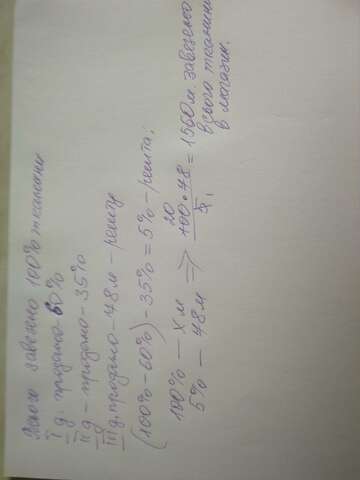 Всього завезено 100% тканини
I д. продано - 60%
II д - продано - 35%
III д. продано - 48 м - решту
(100% - 60%) - 35% = 5% - решта;
100% - х м
5% - 48 м ⇒ 100 • 48 / 5 = 1560 м завезено
20
1
всього тканини
в магазин.